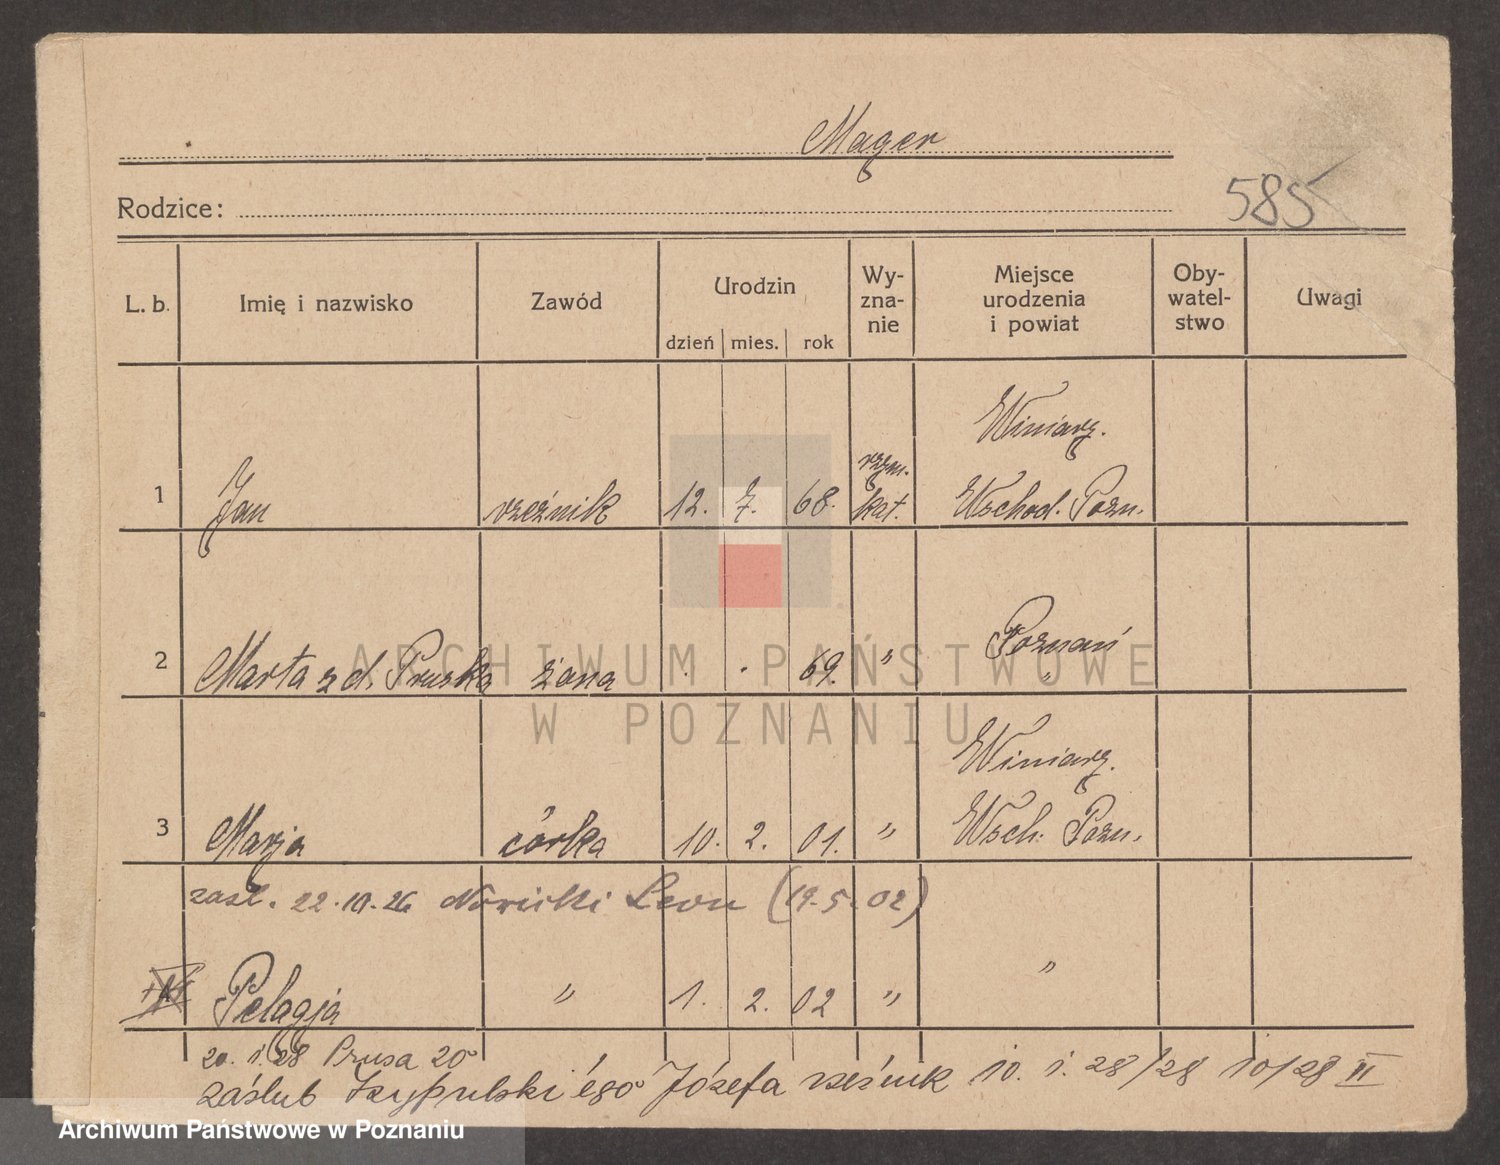 Mager
Rodzice:
585
L. b. Imię i nazwisko Zawód Urodzin dzień mies. rok Wy-zna-nie Miejsce urodzenia i powiat Oby-watel-stwo Uwagi
Winiarg.
rzym.
1 Jan rzeźnik 12. 7. 68. kat. Wschod. Pozn.
Poznań
2 Marta z d. Pruska żona . . 69. " "
Winiarg.
3 Marja córka 10. 2. 01. " Wsch. Pozn.
zaśl. 22.10.26 Nowicki Leon (19.5.02)
Pelagja " 1. 2. 02 " "
20. 1. 28 Prusa 20
zaślub Józefa rzeźnik 10. 1. 28/28 10/28 II
ARCHIWUM PAŃSTWOWE
W POZNANIU
Archiwum Państwowe w Poznaniu